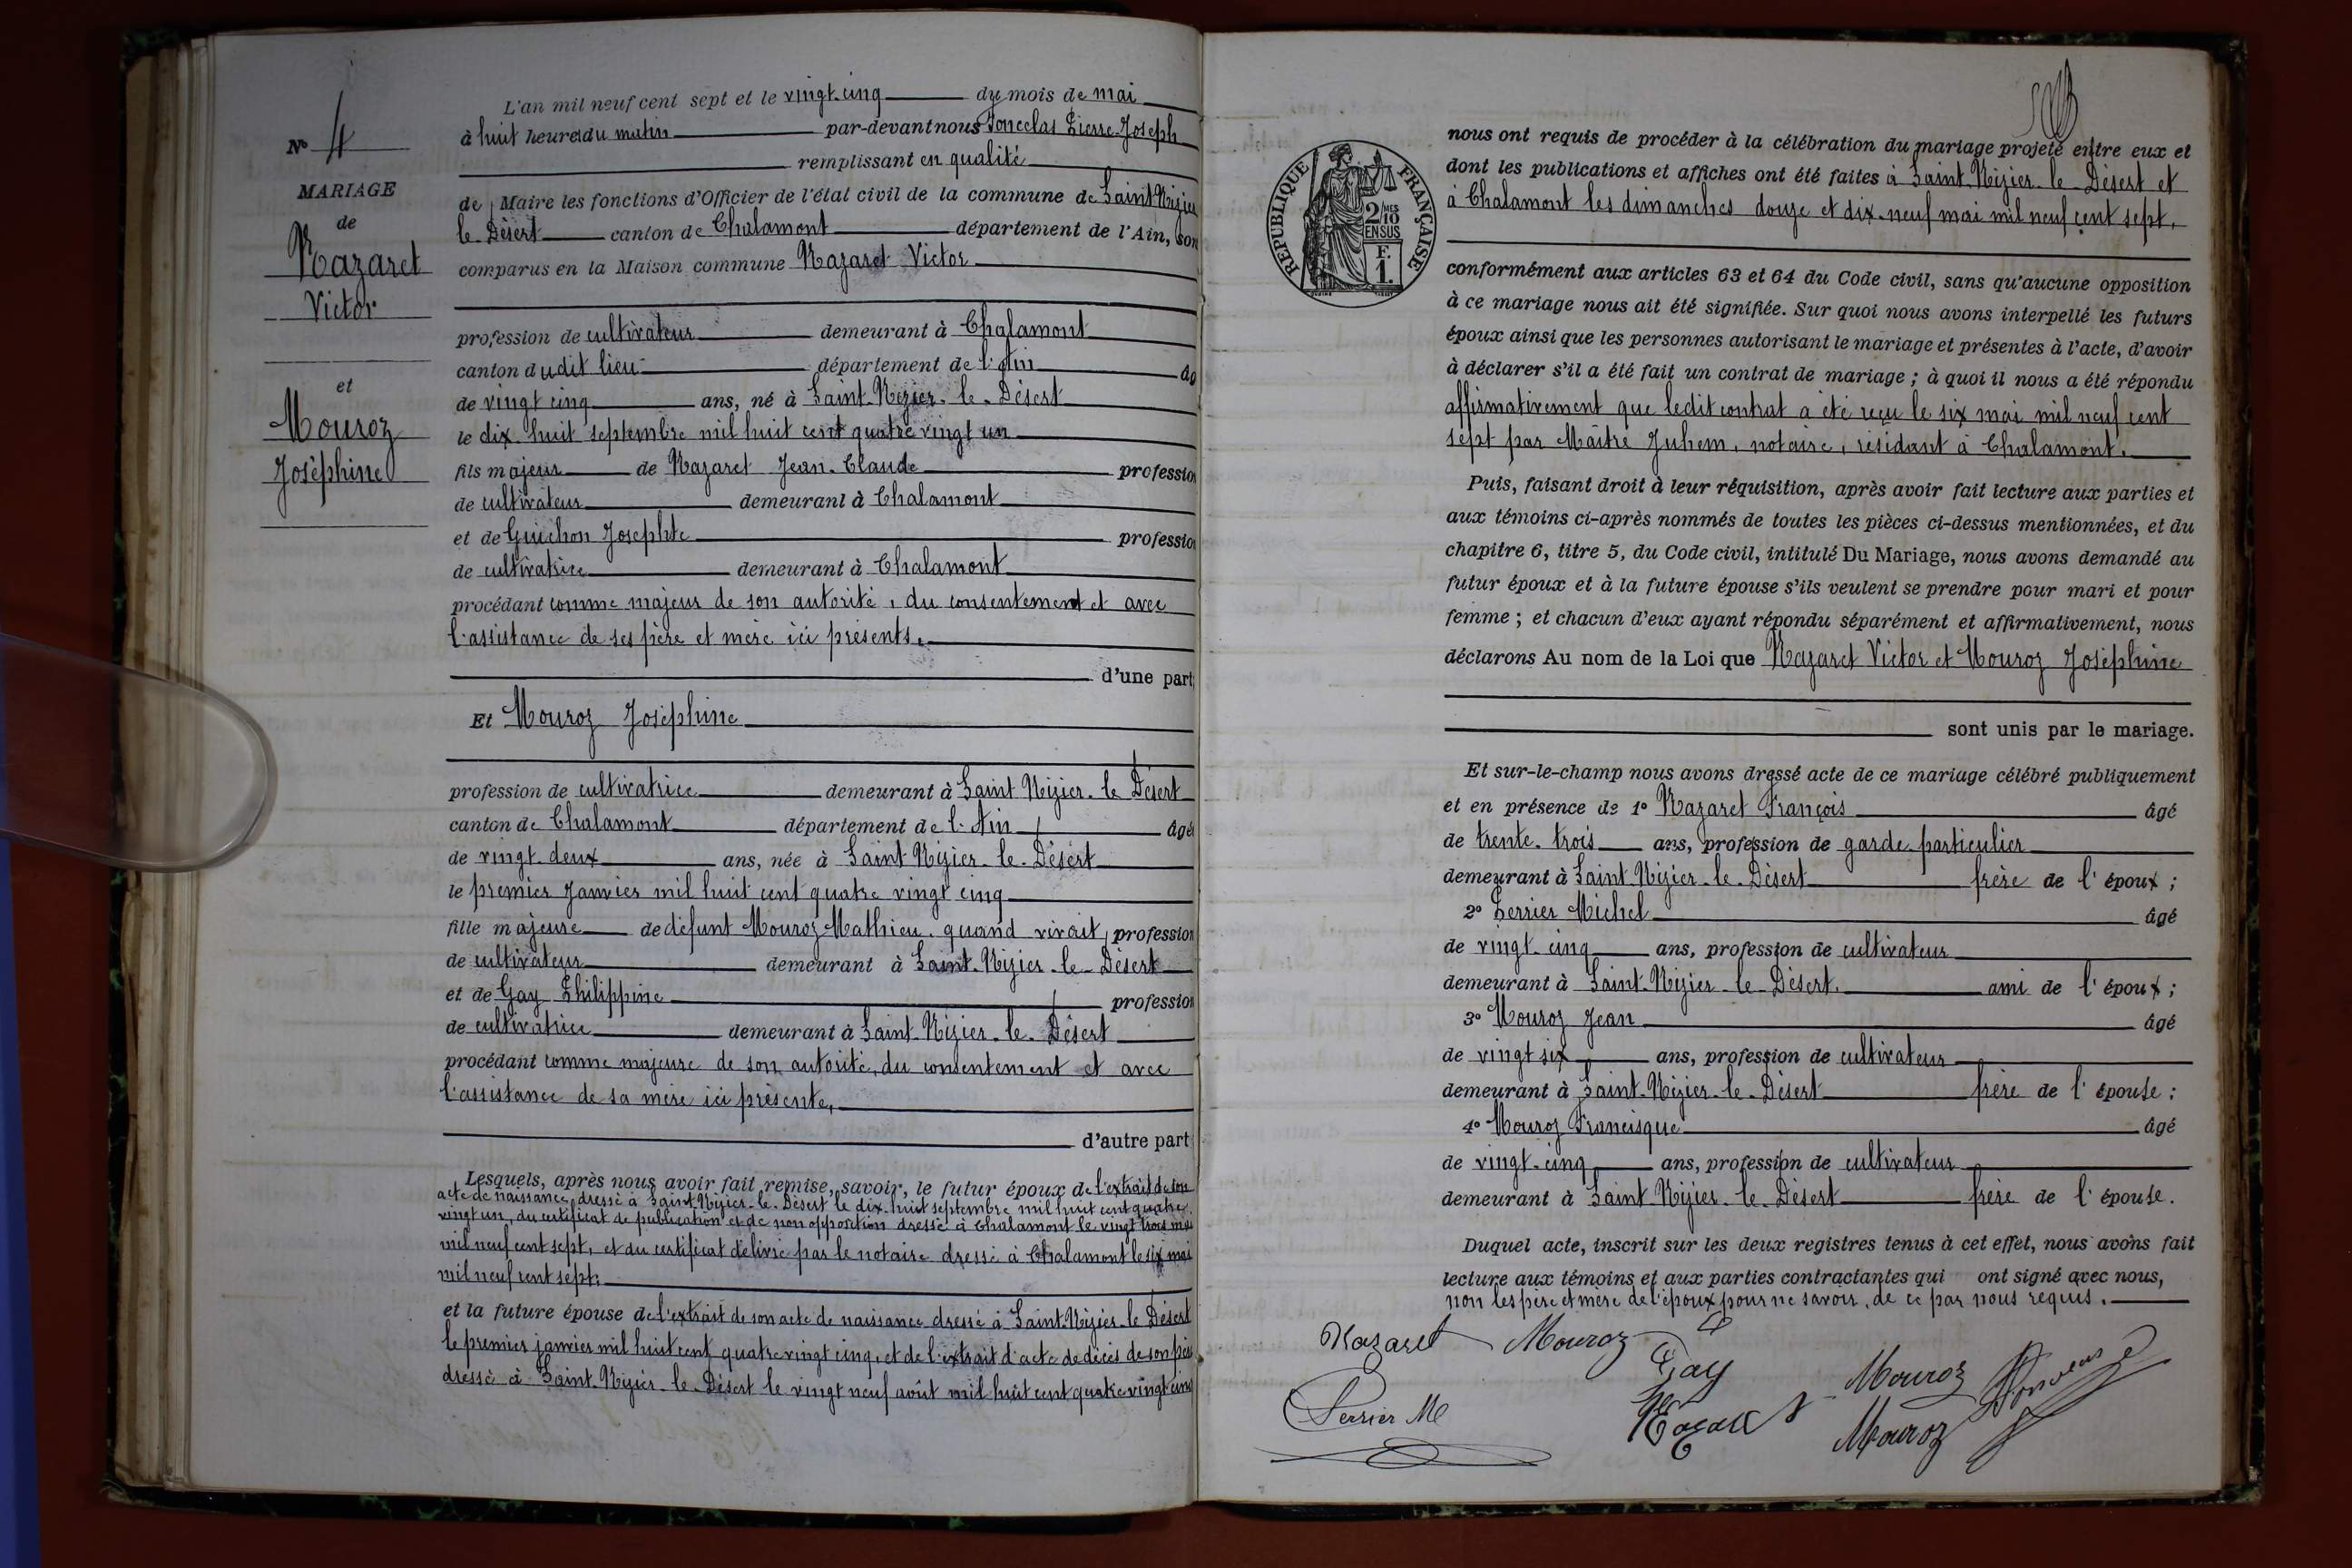 N° 4
MARIAGE
de
Nazaret
Victor
et
Mouroz
Joséphine
L'an mil neuf cent sept et le vingt-cinq du mois de mai
à huit heures du matin par-devant nous Pierre-Joseph
remplissant en qualité
de Maire les fonctions d'Officier de l'état civil de la commune de Saint-Nizier
le-Désert canton de Chalamont département de l'Ain, son
comparus en la Maison commune Nazaret Victor
profession de cultivateur demeurant à Chalamont
canton dudit lieu département de l'Ain âg
de vingt cinq ans, né à Saint-Nizier-le-Désert
le dix-huit septembre mil huit cent quatre vingt un
fils majeur de Nazaret Jean-Claude profession
de cultivateur demeurant à Chalamont
et de Guichon Josephte profession
de cultivatrice demeurant à Chalamont
procédant comme majeur de son autorité, du consentement et avec
l'assistance de ses père et mère ici présents.
d'une part
Et Mouroz Joséphine
profession de cultivatrice demeurant à Saint Nizier-le Désert
canton de Chalamont département de l'Ain âgée
de vingt-deux ans, née à Saint Nizier-le-Désert
le premier Janvier mil huit cent quatre vingt cinq
fille majeure de défunt Mouroz Mathieu, quand vivait, profession
de cultivateur demeurant à Saint-Nizier-le-Désert
et de Gay Philippine profession
de cultivatrice demeurant à Saint-Nizier-le-Désert
procédant comme majeure de son autorité, du consentement et avec
l'assistance de sa mère ici présente,
d'autre part
Lesquels, après nous avoir fait remise, savoir, le futur époux de l'extrait de son
acte de naissance dressé à Saint-Nizier-le-Désert le dix-huit septembre mil huit cent quatre
vingt un, du certificat de publication et de non opposition dressé à Chalamont le vingt trois mai
mil neuf cent sept, et du certificat délivré par le notaire dressé à Chalamont le six mai
mil neuf cent sept;
et la future épouse de l'extrait de son acte de naissance dressé à Saint-Nizier-le Désert
le premier janvier mil huit cent quatre vingt cinq, et de l'extrait d'acte de décès de son père
dressé à Saint-Nizier-le-Désert le vingt neuf août mil huit cent quatre vingt cinq
RÉPUBLIQUE FRANÇAISE
2/10 MES
EN SUS
F.
1.
nous ont requis de procéder à la célébration du mariage projeté entre eux et
dont les publications et affiches ont été faites à Saint-Nizier-le-Désert et
à Chalamont les dimanches douze et dix-neuf mai mil neuf cent sept,
conformément aux articles 63 et 64 du Code civil, sans qu'aucune opposition
à ce mariage nous ait été signifiée. Sur quoi nous avons interpellé les futurs
époux ainsi que les personnes autorisant le mariage et présentes à l'acte, d'avoir
à déclarer s'il a été fait un contrat de mariage ; à quoi il nous a été répondu
affirmativement que ledit contrat a été reçu le six mai mil neuf cent
sept par Maître Juhem, notaire, résidant à Chalamont.
Puis, faisant droit à leur réquisition, après avoir fait lecture aux parties et
aux témoins ci-après nommés de toutes les pièces ci-dessus mentionnées, et du
chapitre 6, titre 5, du Code civil, intitulé Du Mariage, nous avons demandé au
futur époux et à la future épouse s'ils veulent se prendre pour mari et pour
femme ; et chacun d'eux ayant répondu séparément et affirmativement, nous
déclarons Au nom de la Loi que Nazaret Victor et Mouroz Joséphine
sont unis par le mariage.
Et sur-le-champ nous avons dressé acte de ce mariage célébré publiquement
et en présence de 1° Nazaret François âgé
de trente-trois ans, profession de garde-particulier
demeurant à Saint-Nizier-le-Désert frère de l'époux ;
2° Perrier Michel âgé
de vingt-cinq ans, profession de cultivateur
demeurant à Saint-Nizier-le-Désert. ami de l'époux ;
3° Mouroz Jean âgé
de vingt six ans, profession de cultivateur
demeurant à Saint-Nizier-le-Désert frère de l'épouse ;
4° Mouroz Francisque âgé
de vingt-cinq ans, profession de cultivateur
demeurant à Saint Nizier-le-Désert frère de l'épouse.
Duquel acte, inscrit sur les deux registres tenus à cet effet, nous avons fait
lecture aux témoins et aux parties contractantes qui ont signé avec nous,
non les père et mère de l'époux pour ne savoir, de ce par nous requis.
Nazaret Mouroz P Gay
Mouroz
Perrier M Nazaret
Mouroz